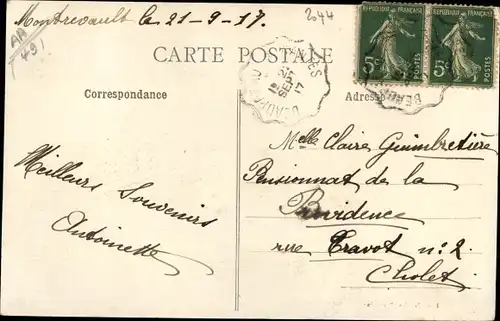 Montrevault le 21-9-17.
244
AA
49
CARTE POSTALE
REPUBLIQUE FRANÇAISE
5c
POSTES
REPUBLIQUE FRANÇAISE
5c
POSTES
21
SEPT
17
BEAUP
Correspondance
Adresse
Meilleurs Souvenirs
Antoinette
Melle Claire Guimbretière
Pensionnat de la
Providence
rue Travot n° 2.
Cholet